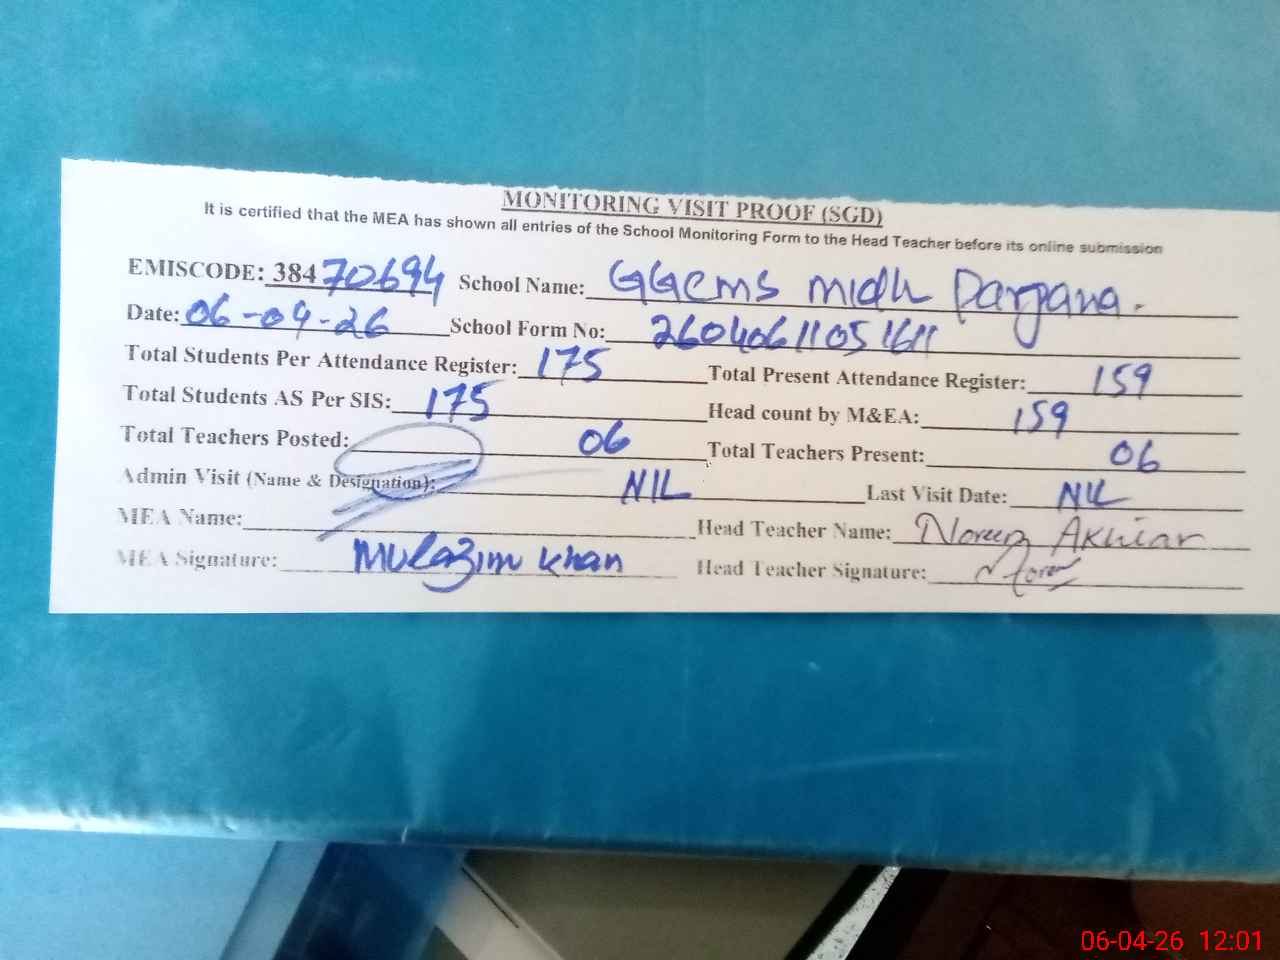 MONITORING VISIT PROOF (SGD)
It is certified that the MEA has shown all entries of the School Monitoring Form to the Head Teacher before its online submission
EMISCODE: 38470694 School Name: GGCMS Midh Pargana.
Date: 06-04-26 School Form No: 26040611051611
Total Students Per Attendance Register: 175 Total Present Attendance Register: 159
Total Students AS Per SIS: 175 Head count by M&EA: 159
Total Teachers Posted: 06 Total Teachers Present: 06
Admin Visit (Name & Designation): NIL Last Visit Date: NIL
MEA Name: Head Teacher Name: Noreen Akhtar
MEA Signature: Mulazim Khan Head Teacher Signature: Noreen
06-04-26 12:01